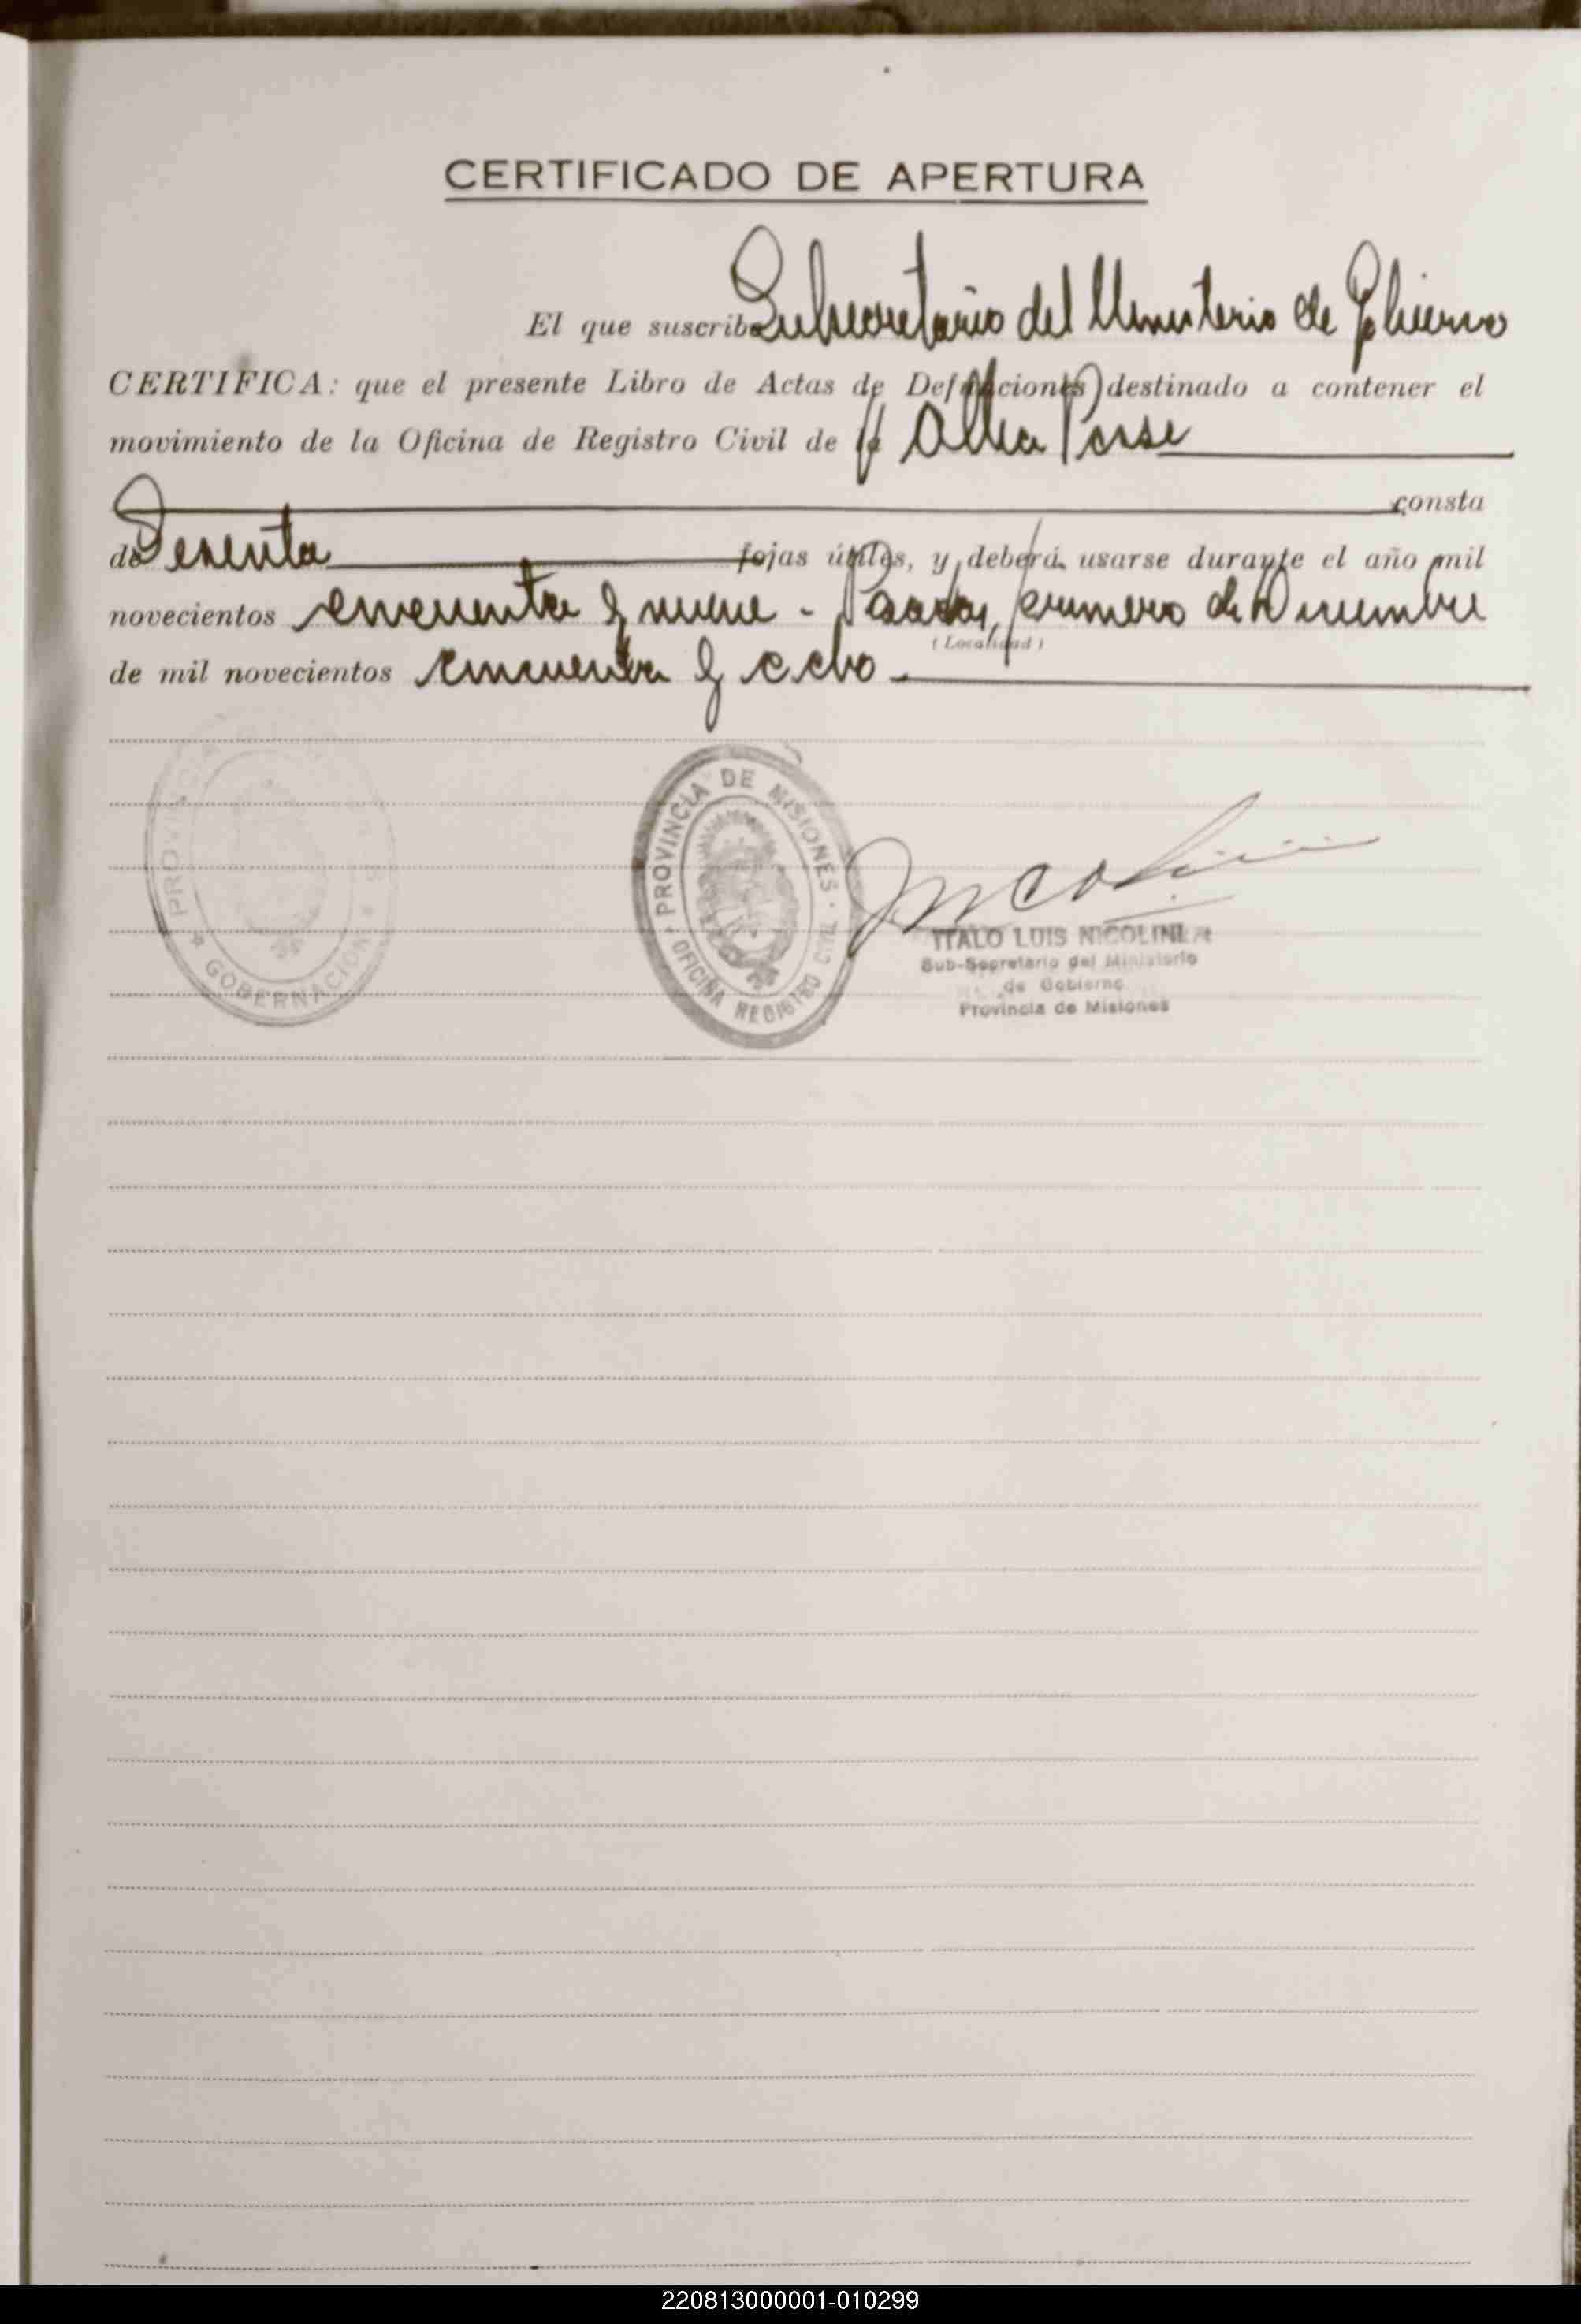 CERTIFICADO DE APERTURA
El que suscribe Subsecretario del Ministerio de Gobierno
CERTIFICA: que el presente Libro de Actas de Defunciones destinado a contener el
movimiento de la Oficina de Registro Civil de Alba Posse
consta
de Sesenta fojas útiles, y deberá usarse durante el año mil
novecientos cincuenta y nueve - Posadas, primero de Diciembre
(Localidad)
de mil novecientos cincuenta y ocho -
PROVINCIA
GOBERNACION
PROVINCIA DE MISIONES
OFICINA REGISTRO CIVIL
ITALO LUIS NICOLINI
Sub-Secretario del Ministerio
de Gobierno
Provincia de Misiones
220813000001-010299